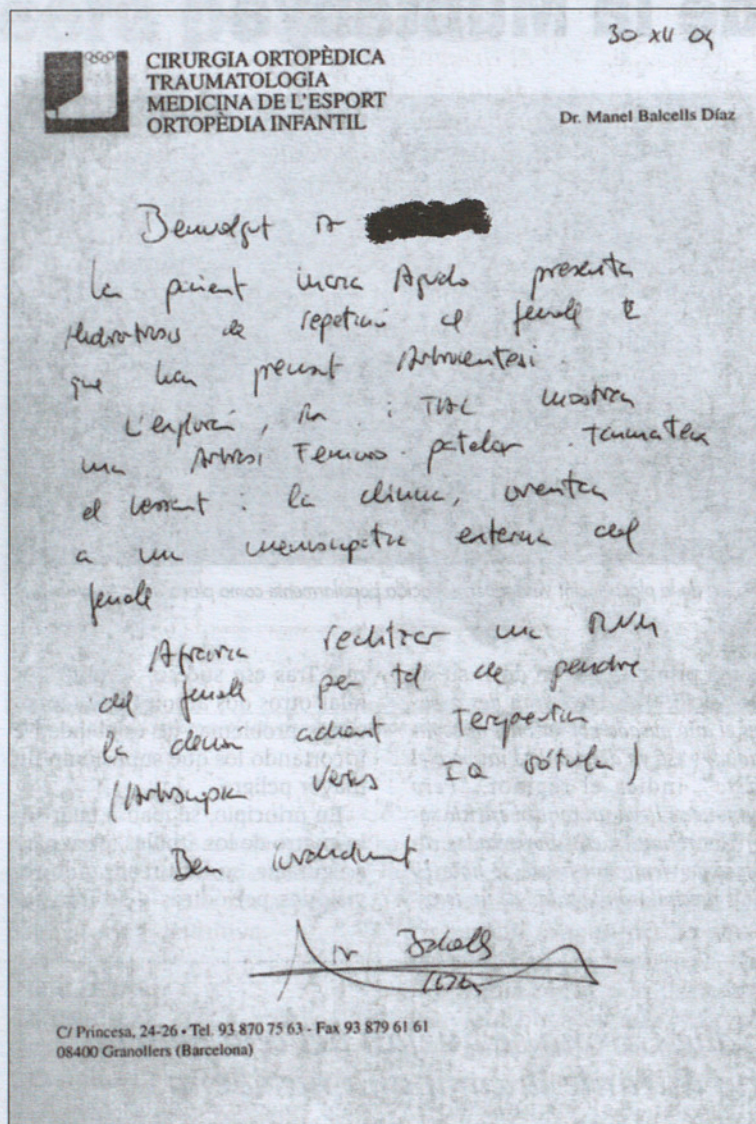 30 XII 04
CIRURGIA ORTOPÈDICA
TRAUMATOLOGIA
MEDICINA DE L'ESPORT
ORTOPÈDIA INFANTIL
Dr. Manel Balcells Díaz
Benvolgut Dr
La pacient Agudo presenta
Hidrartrosis de repetició al genoll E
que han precisat Artrocentesi.
L'exploració, Rx i TAC mostren
una Artrosi Femoro-patelar
el vessant i la clínica, orienten
a una meniscopatia externa del
genoll
Agrairia realitzar una RNM
del genoll per tal de prendre
la decisió adient Terapèutica
(Artroscopia versus IQ ròtula)
Ben cordialment
Dr Balcells
C/ Princesa, 24-26 • Tel. 93 870 75 63 - Fax 93 879 61 61
08400 Granollers (Barcelona)